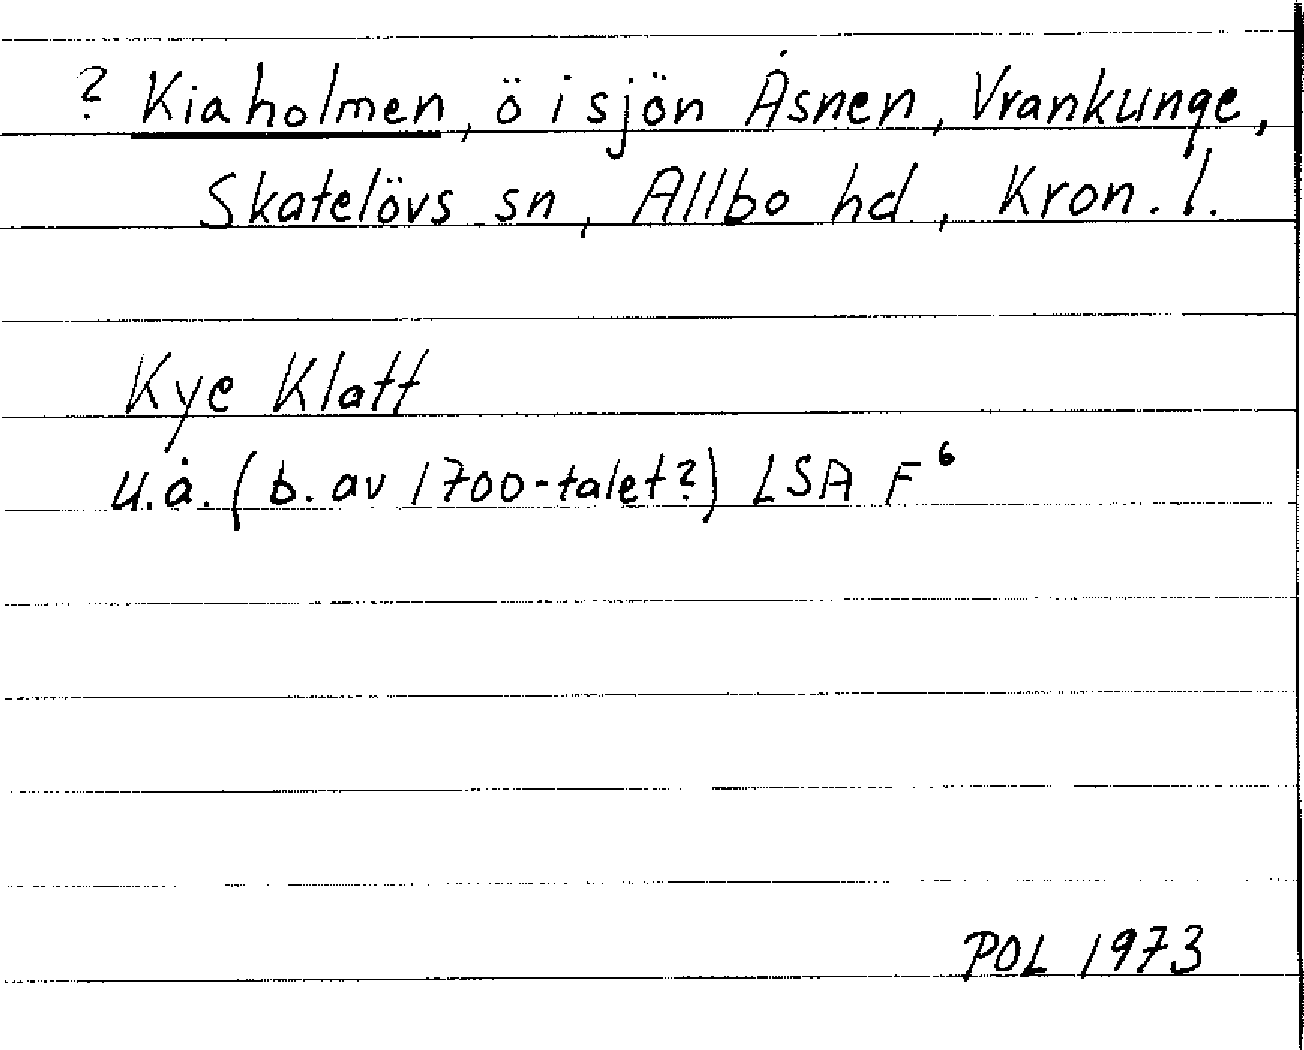 ? Kiaholmen, ö i sjön Åsnen, Vrankunge,
Skatelövs sn, Allbo hd, Kron. l.
Kye Klatt
u.å. (b. av 1700-talet?) LSA F⁶
POL 1973